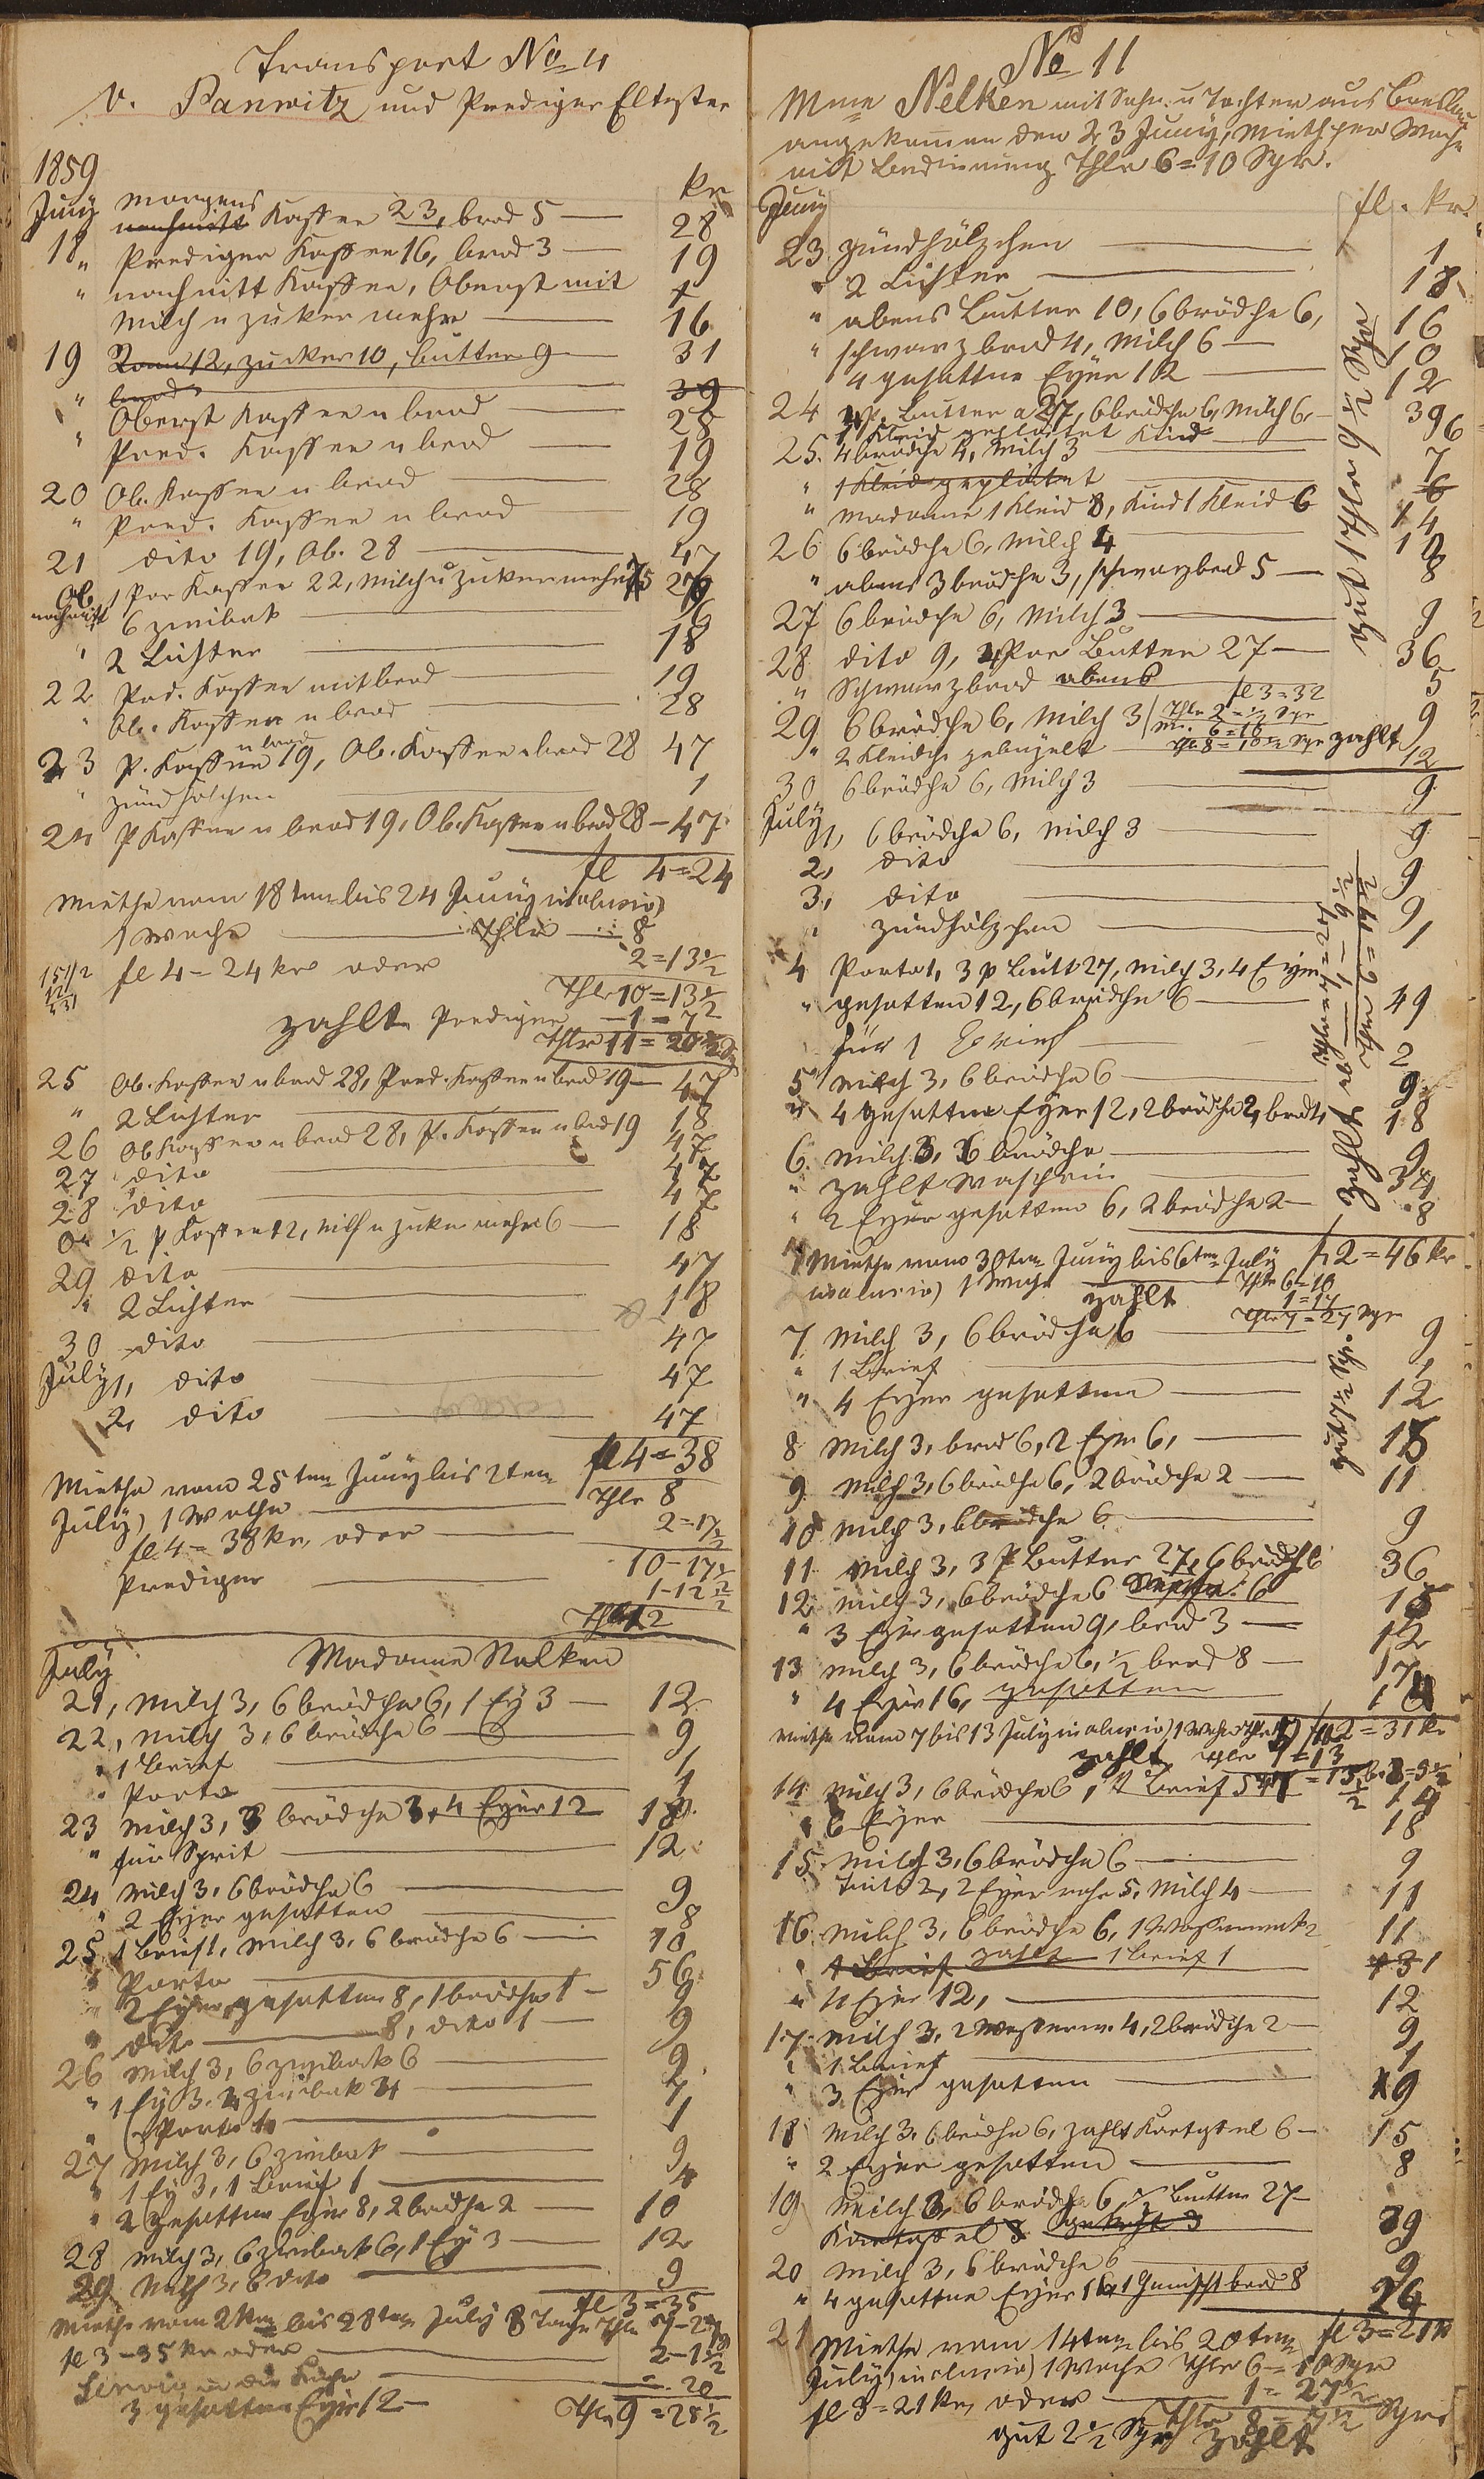 Transport No 4
v. Panwitz und Prediger Eltester
1859
kr
Juny morgens
nachmitt Kaffee 23, brod 5 — 28
18 " Prediger Kaffee 16, brod 3 — 19
" nachmitt Kaffee, Oberst mit
Milch u zuker mehr — 16
19 Rom 12, zucker 10, butter 9 — 31
" brod 39
" Oberst Kaffee u brod — 28
" Pred. Kaffee u brod — 19
20 Ob. Kaffee u brod — 28
" Pred. Kaffee u brod — 19
21 dito 19, Ob. 28 — 47
Ob. nachmitt 1 Por Kaffee 22, Milch u zuker mehr 5 27
6 zwibak — 6
" 2 Lichter — 18
22 Pred. Kaffee mit brod — 19
" Ob. Kaffee u brod — 28
23 P. Kaffee u brod 19, Ob. Kaffee u brod 28 47
" zündhölchen — 1
24 P Kaffee u brod 19, Ob. Kaffee u brod 28 — 47
fl 4 = 24
Miethe vom 18ten bis 24 Juny inclusiv)
1 Woche — Thlr — 8
fl 4 = 24 kr oder 2 = 13 1/2
Thlr 10 = 13 1/2
zahlt Prediger — 1 = 7
Thlr 11 = 20 1/2
25 Ob. Kaffee u brod 28, Pred. Kaffee u brod 19 — 47
" 2 Lichter — 18
26 Ob Kaffee u brod 28, P. Kaffee u brod 19 47
27 dito — 47
28 dito — 47
Ob 1/2 P Kaffee 12, Milch u zuker mehr 6 — 18
29 dito — 47
" 2 Lichter — 18
30 dito — 47
July 1, dito — 47
2, dito — 47
fl 4 = 38
Miethe vom 25ten Juny bis 2ten
July) 1 Woche — Thlr 8
fl 4 = 38 kr, oder — 2 = 17 1/2
10 - 17 1/2
Prediger — 1 - 12 1/2
Thlr 12
July Madame Nelken
21, Milch 3, 6 brödche 6, 1 Ey 3 — 12
22, Milch 3, 6 brödche 6 — 9
" 1 brief — 1
" Porto — 1
23 Milch 3, 3 brödche 3, 4 Eyer 12 18
" für Sprit — 12
24 Milch 3, 6 brödche 6 — 9
" 2 Eyer gesotten — 8
25 1 brief 1, Milch 3, 6 brödche 6 — 10
" Porto — 56
" 2 Eyer gesotten 8, 1 brödche 1 — 9
" dito — 8, dito 1 — 9
26 Milch 3, 6 zwibak 6 — 9
" 1 Ey 3, 4 zwibak 4 — 7
" Porto — 1
27 Milch 3, 6 zwibak — 9
" 1 Ey 3, 1 brief 1 — 4
" 2 gesotten Eyer 8, 2 brödche 2 — 10
28 Milch 3, 6 zwibak 6, 1 Ey 3 — 12
29 Milch 3, 6 dito — 9
fl 3 = 35
Miethe vom 21ten bis 28ten July 8 Tage Thlr
fl 3 - 35 kr oder — 2 - 1 1/2
Servis in die Küche — 20
3 gesotten Eyer 12 — Thlr 9 = 28 1/2
No 11
Mme Nelken mit Sohn u Tochter aus Breslau
angekomen den 23 Juny, Mieth per Woche
mit bedienung Thlr 6 = 10 Sgr.
Juny fl. kr.
23 zündhölzchen — 1
" 2 Lichter — 18
" abens Butter 10, 6 brödche 6, 16
" schwarzbrod 4, Milch 6 — 10
4 gesottne Eyer 12 — 12
24 Butter a 27, 6 brödche 6, Milch 6, 39
1 Kleid geplättet Kind 6
25. 4 brödche 4, Milch 3 — 7
" 1 Kleid geplättet — 6
" Madame 1 Kleid 8, Kind 1 Kleid 6 14
26 6 brödche 6, Milch 4 — 10
" abens 3 brödche 3, schwarzbrod 5 — 8
27 6 brödche 6, Milch 3 — 9
28 dito 9, Por Butter 27 — 36
" Schwarzbrod abens 5
29 6 brödche 6, Milch 3 9
fl 3 = 32
" 2 Kleidche gebügelt 12
Thlr 8 = 10 1/2 Sgr zahlt
gut 1 Thlr 6 1/2 Sgr
30 6 brödche 6, Milch 3 — 9
July 1, 6 brödche 6, Milch 3 — 9
2, dito — 9
3, dito — 9
" zündhölzchen — 1
4 Porto 1, 3 p butt 27, Milch 3, 4 Eyer
" gesotten 12, 6 brödche 6 — 49
für 1 brief — 2
5 Milch 3, 6 brödche 6 — 9
" 4 gesottne Eyer 12, 2 brödche 2, brod 4, 18
6. Milch 3, 6 brödche — 9
" zahlt Wascherin — 34
" 2 Eyer gesotten 6, 2 brödche 2 — 8
Miethe vom 30ten Juny bis 6ten July fl 2 = 46 kr
inclusiv) 1 Woche Thlr 6 = 10
zahlt 1 = 17
Thlr 7 = 27 Sgr
7 Milch 3, 6 brödche 6 — 9
" 1 Brief — 1
" 4 Eyer gesotten — 12
8 Milch 3, brod 6, 2 Eyer 6, — 15
9 Milch 3, 6 brödche 6, 2 brödche 2 — 11
10 Milch 3, 6 brödche 6 — 9
11 Milch 3, 3 P Butter 27, 6 brödch 6 36
12 Milch 3, 6 brödche 6 15
" 3 Eyer gesotten 9, brod 3 — 12
13 Milch 3, 6 brödche 6, 1/2 brod 8 — 17
" 4 Eyer 16, gesotten
Miethe vom 7 bis 13 July inclusiv) 1 Woche fl 2 = 31 kr
zahlt
14 Milch 3, 6 brödche 6, brief 5 14
" 6 Eyer — 18
15 Milch 3, 6 brödche 6 — 9
2, 2 Eyer rohe 5, Milch 4 — 11
16 Milch 3, 6 brödche 6, 1 Wasserwek 2 11
" 1 brief 1
" 4 Eyer 12, — 12
17 Milch 3, 2 Wasserw. 4, 2 brödche 2 — 9
" 1 Brief — 1
" 3 Eyer gesotten — 9
18 Milch 3, 6 brödche 6, zahlt Kartofel 6 — 15
" 2 Eyer gesotten — 8
19 Milch 3, 6 brödche 6, Butter 27 —
Kartoffel 39
20 Milch 3, 6 brödche 6 — 9
" 4 gesottne Eyer 16, 1 Gemischtbrod 8 24
21 Miethe vom 14ten bis 20ten fl 3 = 21 kr
July) inclusiv) 1 Woche Thlr 6 = 10 Sgr
fl 3 = 21 kr, oder — 1 = 27 1/2
Thlr 8 = 7 1/2 Sgr
gut 2 1/2 Sgr zahlt